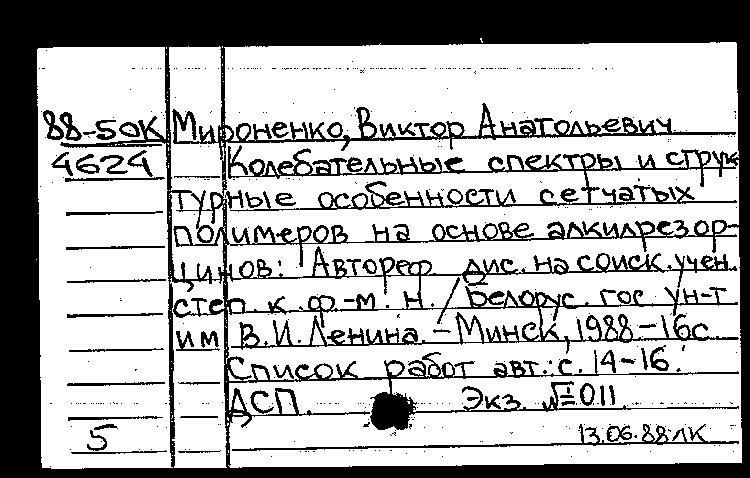 88-5 ОК Мироненко, Виктор Анатольевич
4624 Колебательные спектры и струк
турные особенности сетчатых
полимеров на основе алкилрезор-
цинов: Автореф. дис. на соиск. учен.
степ. к. ф.-м. н. / Белорус. гос ун-т
им В.И. Ленина. - Минск, 1988 - 16с
Список работ авт.: с. 14-16.
ДСП. Экз. № 011
5 13.06.88 ЛК